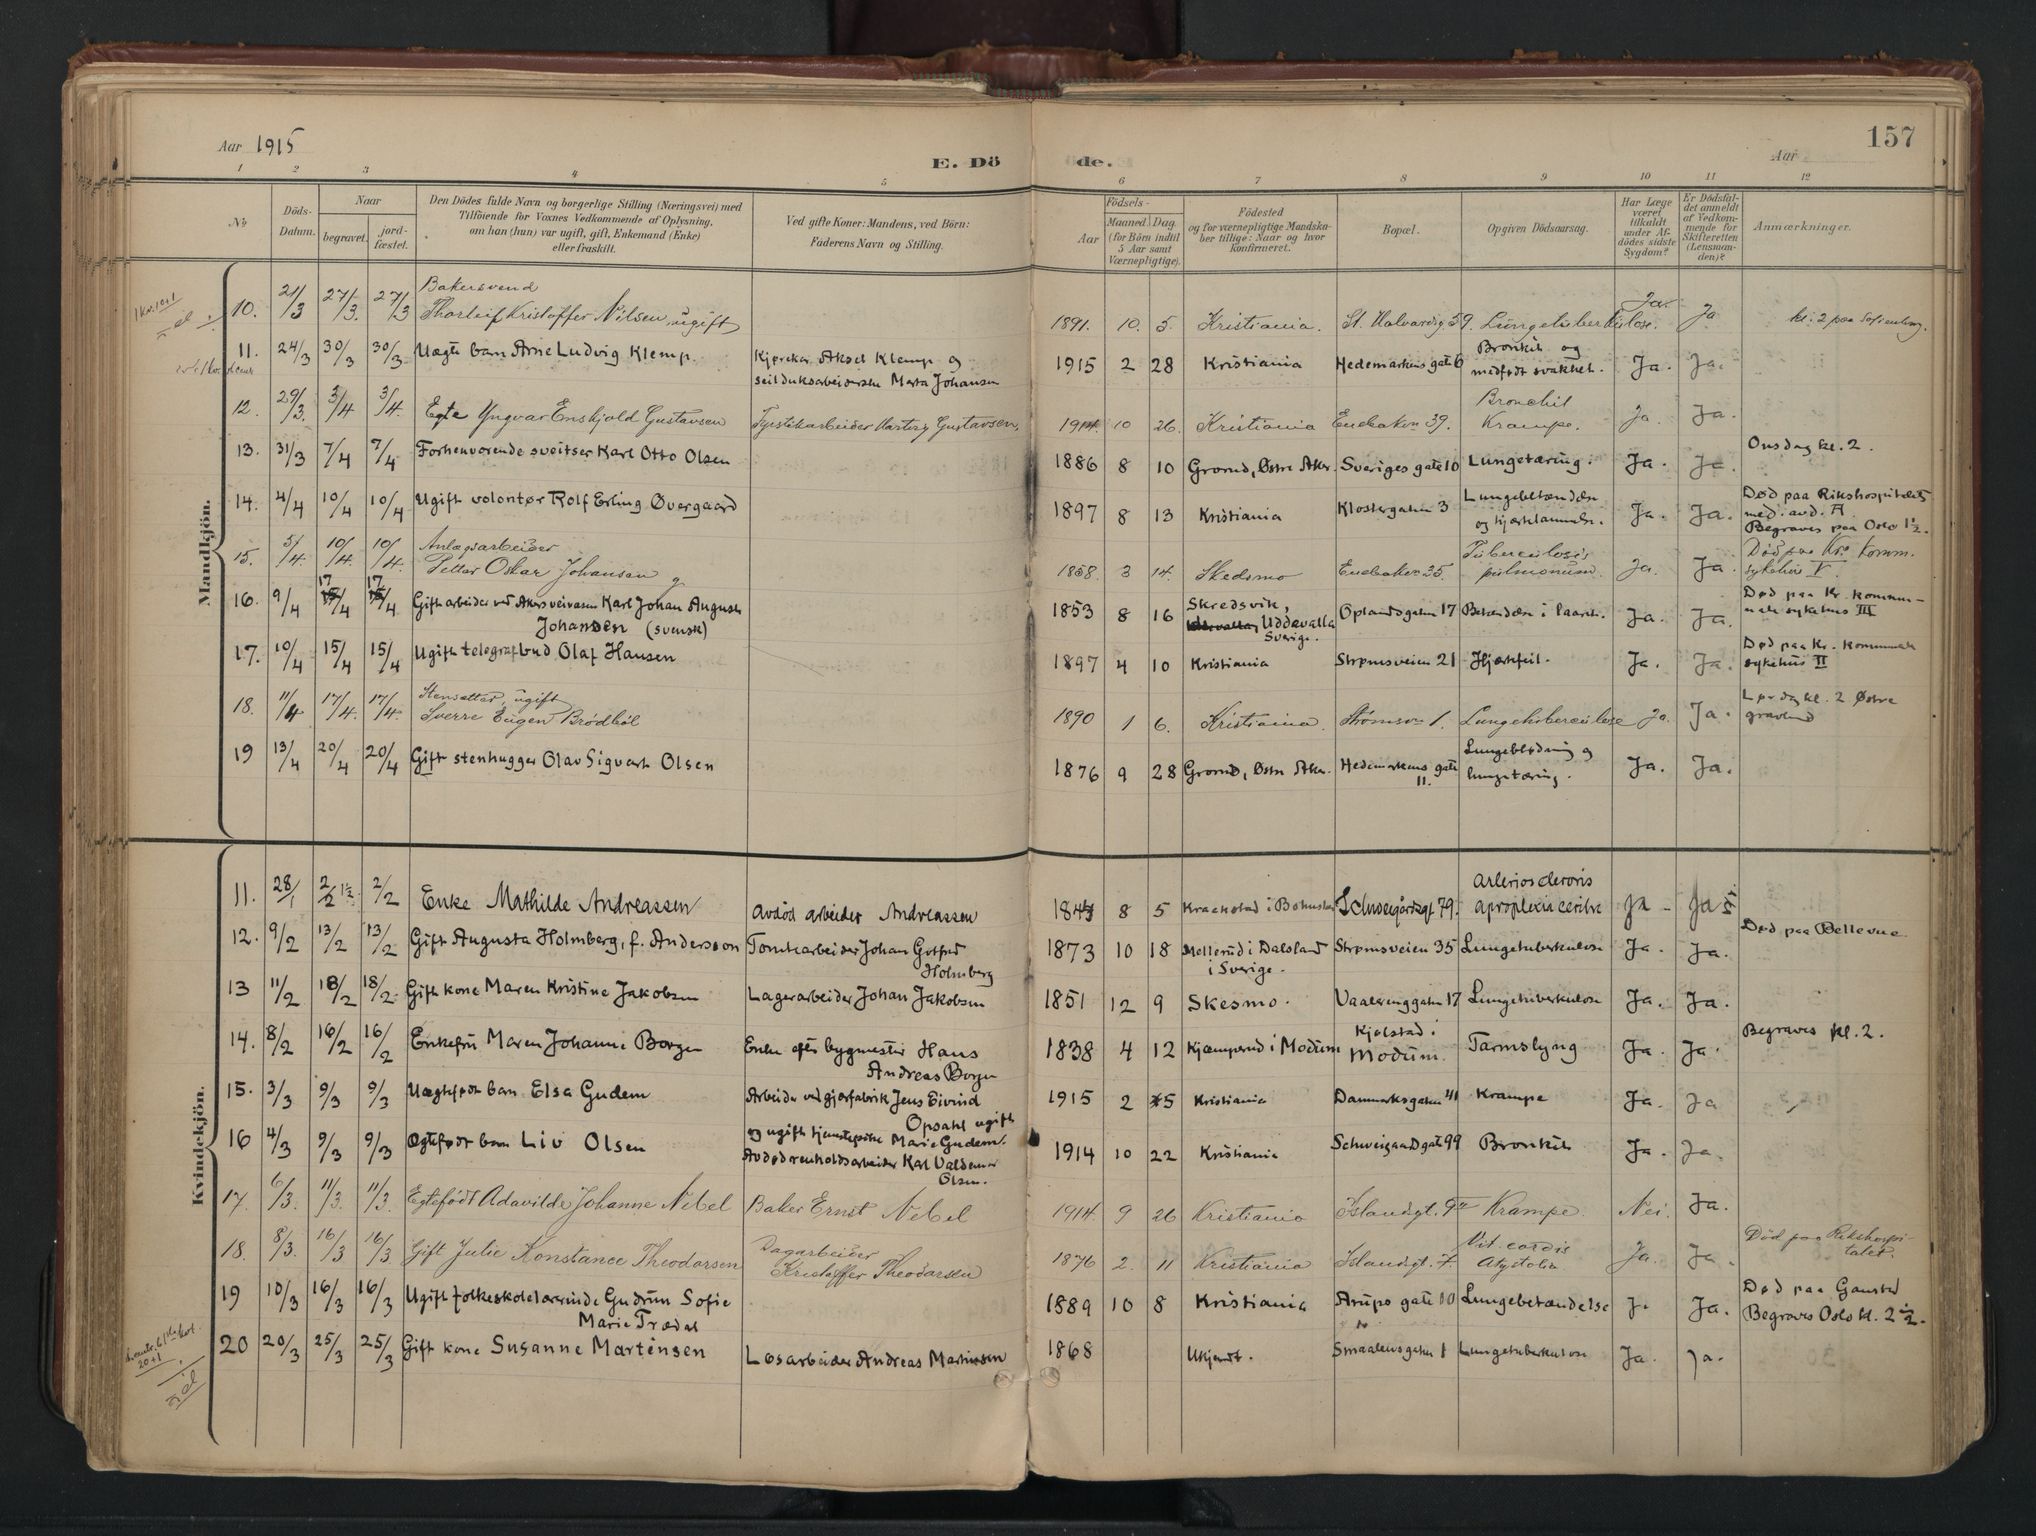 Aar 1915
E. Dö de.
Aar
157
1 2 3 4 5 6 7 8 9 10 11 12
No. Döds-Datum. Naar begravet. jordfæstet. Den Dödes fulde Navn og borgerlige Stilling (Næringsvei) med Tilföiende for Voxnes Vedkommende af Oplysning, om han (hun) var ugift, gift, Enkemand (Enke) eller fraskilt. Ved gifte Koner: Mandens, ved Börn: Faderens Navn og Stilling. Aar Födsels- Maaned. Dag (for Börn indtil 5 Aar samt Værnepligtige). Födested og for værnepligtige Mandskaber tillige: Naar og hvor Konfirmeret. Bopæl. Opgiven Dödsaarsag. Har Læge været tilkaldt under Afdödes sidste Sygdom? Er Dödsfaldet anmeldt af Vedkommende for Skifteretten (Lensmanden)? Anmærkninger.
Mandkjön.
10. 21/3 27/3. 27/3 Bakersvend
Thorleif Kristoffer Nilsen, ugift 1891. 10. 5. Kristiania. St. Halvardsg 59. Lungetuberkulose. Ja. Ja kl. 2 paa Sofienberg.
11. 24/3 30/3 30/3. Uegte barn Arne Ludvig Klemp. Kjørekar Aksel Klemp og
seilduksarbeiderske Marta Johansen 1915 2 28 Kristiania Hedemarkens gate 6 Bronkit og
medfødt svakhet. Ja. Ja.
12. 29/3. 3/4 3/4. Egte Yngvar Enskjold Gustavsen Fyrstikarbeider Hartvig Gustavsen, 1914. 10 26. Kristiania Enebakv 39. Bronchit
Krampe. Ja Ja.
13. 31/3 7/4 7/4 Forhenværende sveitser Karl Otto Olsen 1886 8 10 Grorud, Østre Aker. Sveriges gate 10 Lungetæring. Ja. Ja. Onsdag kl. 2.
14. 4/4 10/4 10/4 Ugift volontør Rolf Erling Øvergaard 1897 8 13 Kristiania Klostergaten 3 Lungebetændelse
og hjertelammelse. Ja. Ja. Død paa Rikshospitalets
med. avd. A
Begraves paa Oslo 1½.
15. 5/4 10/4. 10/4. Anlægsarbeider
Petter Oskar Johansen g 1858. 3 14. Skedsmo Enebakv 35. Tuberculosis
pulmonum. Ja. Ja. Død paa Kra. Komm.
sykehus V.
16. 9/4 17/4 17/4 Gift arbeider ved Akers veivæsen Karl Johan August
Johansen (svensk) 1853 8 16 Skredsvik,
Uddevalla
Sverige. Oplandsgaten 17 Betændelse i Ja. Ja. Død paa Kr. kommunale
sykehus III
17. 10/4 15/4 15/4 Ugift telegrafbud Olaf Hansen 1897 4 10 Kristiania Strømsveien 21 Hjertefeil. Ja. Ja. Død paa Kr. kommunale
sykehus II
18. 11/4 17/4. 17/4. Stensætter, ugift
Sverre Eugen Brödböl 1890 1 6. Kristiania. Strömsv 1. Lungetuberculose Ja. Ja. Lørdag kl. 2 Østre
gravlund
19 13/4 20/4 20/4 Gift stenhugger Olav Sigvart Olsen 1876 9 28 Grorud, Østre Aker. Hedemarkens gate
11. Lungeblødning og
lungetæring. Ja. Ja.
Kvindekjön.
11. 28/1 2/2 1½ 2/2 Enke Mathilde Andreassen Avdød arbeider Andreassen 8 5 i Bohuslen Schweigårdsgt 79. Arteriosclerosis
Ja Ja
12. 9/2 13/2 13/2 Gift Augusta Holmberg, f. Andersson Tomtearbeider Johan Gotfred
Holmberg 1873 10 18 Mellerud i Dalsland
i Sverige. Strømsveien 35 Lungetuberkulose Ja. Ja. Død paa Bellevue
13 11/2 18/2 18/2. Gift kone Maren Kristine Jakobsen Lagerarbeider Johan Jakobsen 1851 12 9 Skesmo. Vaalerenggaten 17 Lungetuberkulose Ja. Ja.
14. 8/2 16/2 16/2 Enkefru Maren Johanne Borgen Enke efter bygmester Hans
Andreas Borgen 1838 4 12 Kjæmperud i Modum Kjølstad i
Modum. Tarmslyng Ja. Ja. Begraves kl. 2.
15. 3/3 9/3 9/3 Uegtefødt barn Elsa Gudem Arbeider ved gjærfabrik Jens Eivind
Opsahl ugift
og ugift tjenestepike Marie Gudem. 1915 2 5 Kristiania Danmarksgaten 41 Krampe Ja. Ja
16 4/3 9/3 9/3 Egtefødt barn Liv Olsen Avdød renholdsarbeider Karl Valdemar
Olsen. 1914 10 22 Kristiania Schweigaardgate 99 Bronkit Ja. Ja.
17. 6/3. 11/3. 11/3. Egtefödt Adavilde Johanne Nebel Baker Ernst Nebel 1914. 9 26 Kristiania Islandsgt. Krampe. Nei. Ja.
18. 8/3. 16/3 16/3 Gift Julie Konstance Theodorsen Dagarbeider
Kristoffer Theodorsen 1876 2. 11 Kristiania Islandsgt. 7. Vit. cordis
Asystoli Ja Ja. Död paa Rikshospitalet.
19 10/3 16/3 16/3 Ugift folkeskolelærerinde Gudrun Sofie
Marie Trædal 1889 10 8 Kristiania Arups gate 10 Lungebetændelse J. Ja. Død paa Gaustad
Begraves Oslo kl. 2½.
20 20/3 25/3 25/3 Gift kone Susanne Martensen Løsarbeider Andreas Martinsen 1868 Ukjendt. Smaalensgaten 1 Lungetuberkulose Ja. Ja.